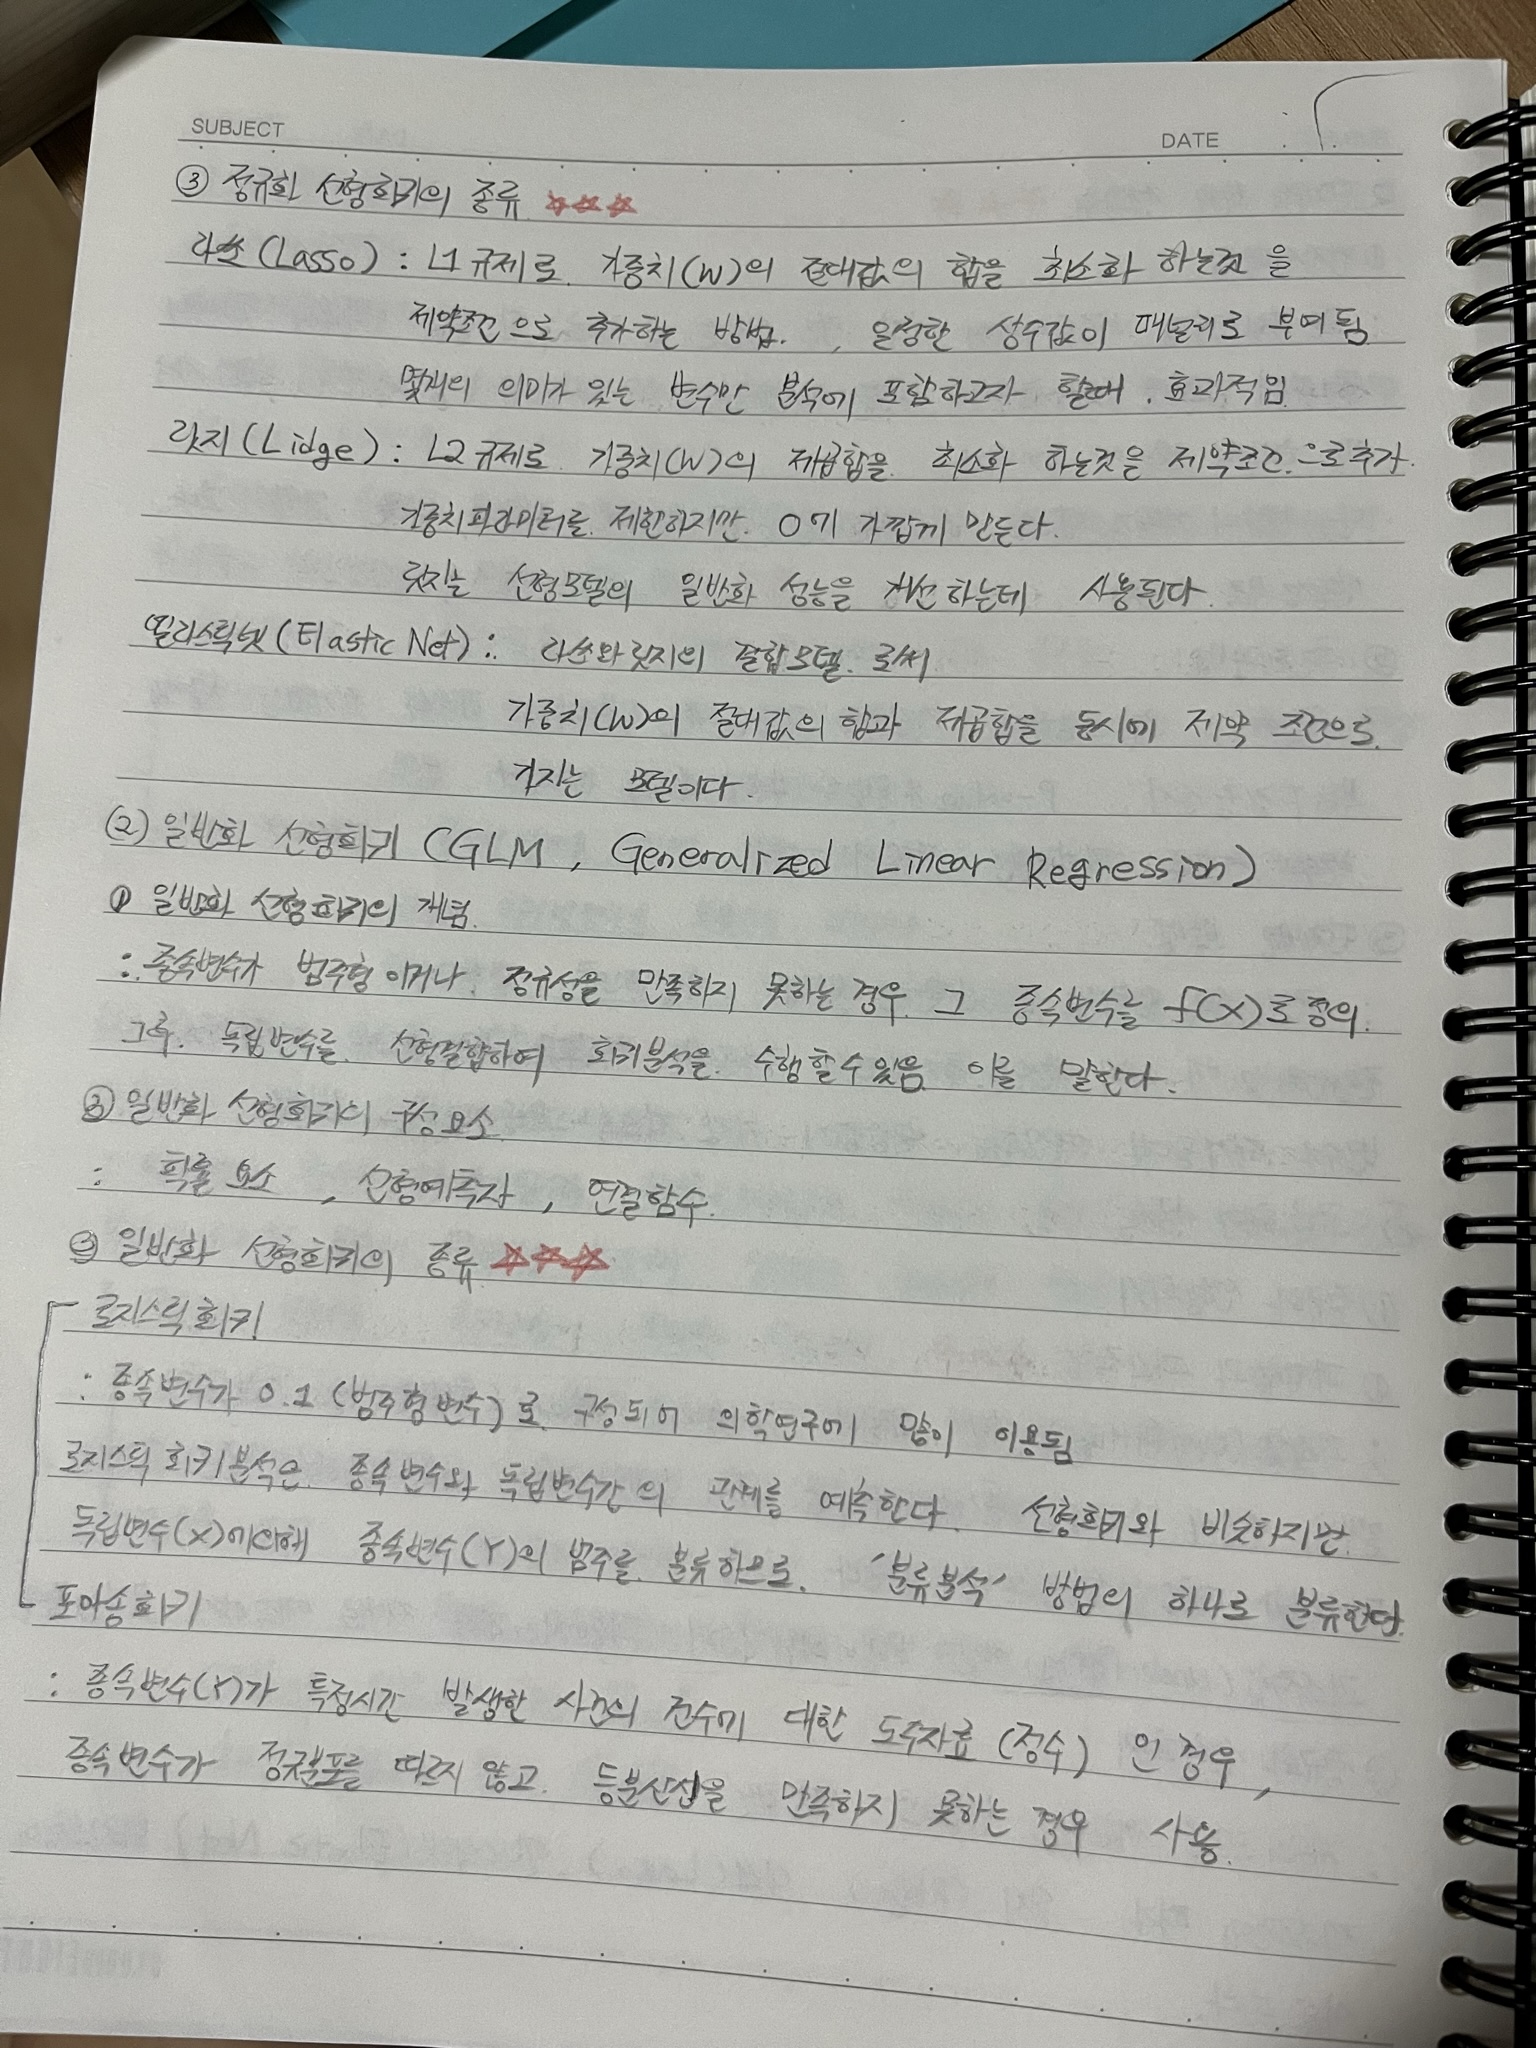 SUBJECT
DATE
③ 정규화 선형회귀의 종류 ☆☆☆
라쏘(Lasso) : L1규제로 가중치(W)의 절대값의 합을 최소화 하는것 을
제약조건으로 추가하는 방법. , 일정한 상수값이 패널티로 부여됨
몇개의 의미가 있는 변수만 분석에 포함하고자 할때. 효과적임
릿지(Lidge) : L2규제로 가중치(W)의 제곱합을 최소화 하는것을 제약조건으로추가.
가중치파라미터를 제한하지만. 0에 가깝게 만든다.
릿지는 선형모델의 일반화 성능을 개선하는데 사용된다.
엘라스틱넷(Elastic Net) : 라쏘와릿지의 결합모델. 로써
가중치(W)의 절대값의 합과 제곱합을 동시에 제약 조건으로
가지는 모델이다.
(2) 일반화 선형회귀 (GLM, Generalized Linear Regression)
① 일반화 선형회귀의 개념.
: 종속변수가 범주형이거나 정규성을 만족하지 못하는 경우 그 종속변수를 f(x)로 정의.
그후. 독립변수를 선형결합하여 회귀분석을 수행할수있음 이를 말한다.
② 일반화 선형회귀의 구성요소
: 확률요소 , 선형예측자 , 연결함수.
③ 일반화 선형회귀의 종류 ☆☆☆
로지스틱 회귀
: 종속변수가 0.1 (범주형변수)로 구성되어 의학연구에 많이 이용됨
로지스틱 회귀분석은 종속변수와 독립변수간의 관계를 예측한다. 선형회귀와 비슷하지만
독립변수(X)에의해 종속변수(Y)의 범주를 분류하므로. '분류분석' 방법의 하나로 분류한다.
포아송회귀
: 종속변수(Y)가 특정시간 발생한 사건의 건수에 대한 도수자료 (정수) 인 경우,
종속변수가 정규분포를 따르지 않고. 등분산성을 만족하지 못하는 경우 사용.